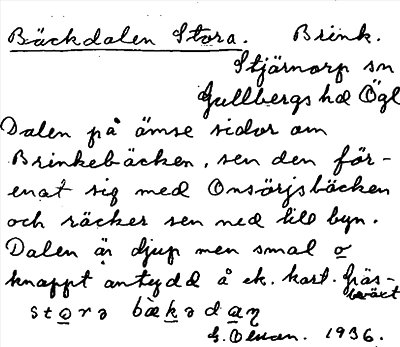 Bäckdalen Stora. Brink.
Stjärnorp sn
Gullbergs hd Ögl
Dalen på ömse sidor om
Brinkebäcken, sen den för-
enat sig med Onsörjsbäcken
och räcker sen ned till byn.
Dalen är djup men smal o
knappt antydd å ek. kart. Gräs-
beväxt
stọrə bækədaṇ
G. Olsson. 1936.